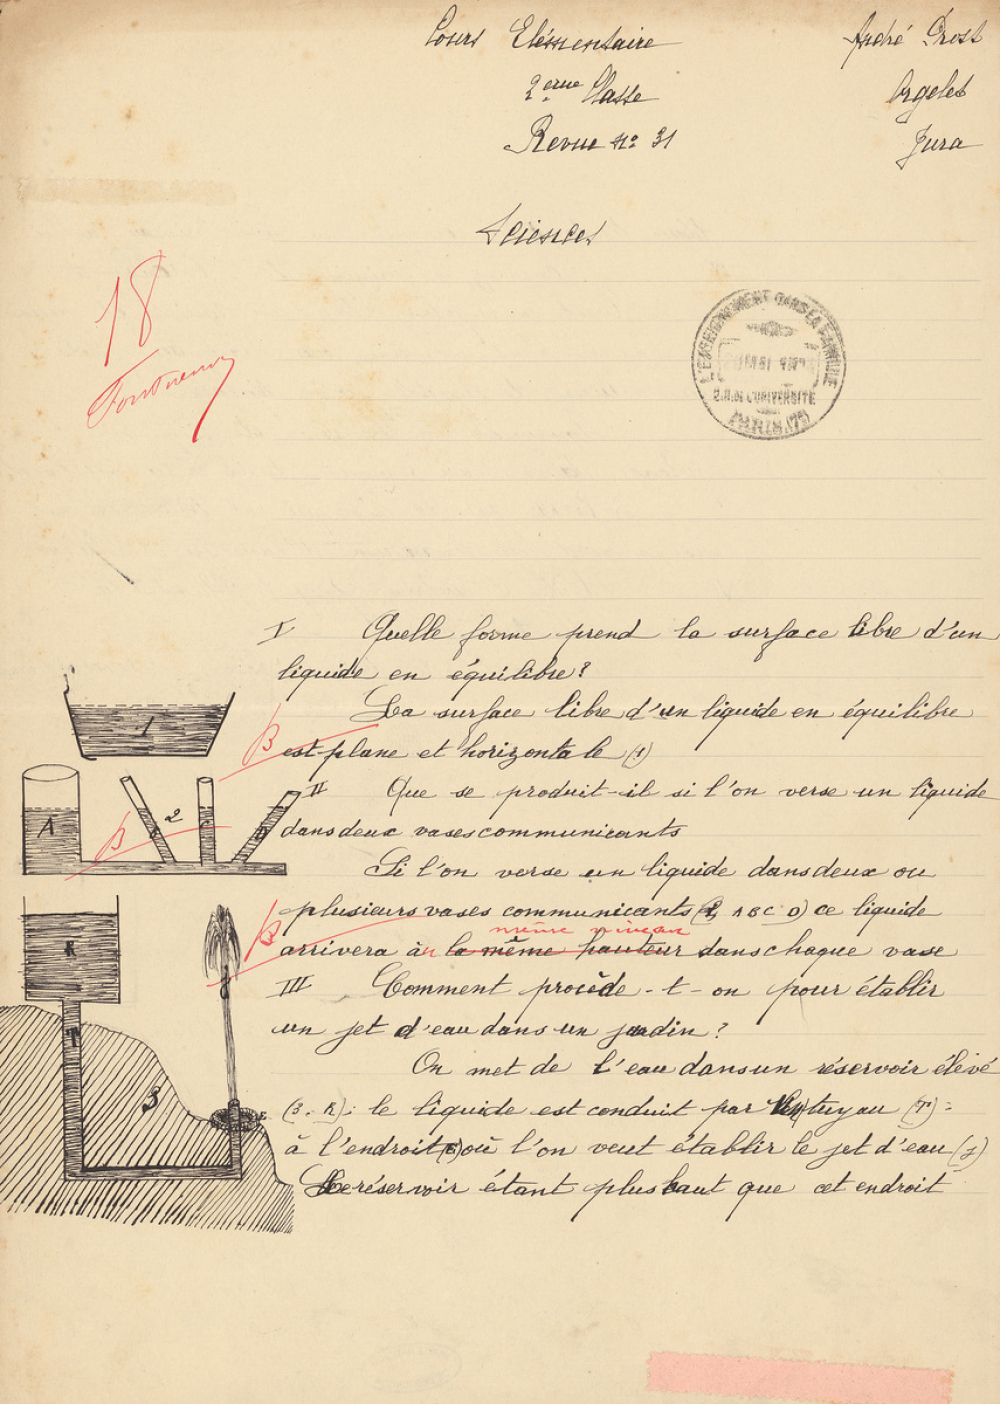 Cours Elémentaire
2eme Classe
Revue no 31
André Prost
Orgelet
Jura
Sciences
18
L'ENSEIGNEMENT DANS LA FAMILLE
MAI
S.G. DE L'UNIVERSITÉ
PARIS (7e)
I Quelle forme prend la surface libre d'un
liquide en équilibre?
La surface libre d'un liquide en équilibre
B est plane et horizontale (1)
II Que se produit-il si l'on verse un liquide
dans deux vases communicants
Si l'on verse un liquide dans deux ou
plusieurs vases communicants (2, A B C D) ce liquide
même niveau
B arrivera à la même hauteur dans chaque vase
III Comment procède-t-on pour établir
un jet d'eau dans un jardin?
On met de l'eau dans un réservoir élevé
(3. R): le liquide est conduit par un tuyau (T)
à l'endroit (E) où l'on veut établir le jet d'eau (J)
Le réservoir étant plus haut que cet endroit
1
A
B
2
R
T
3
E